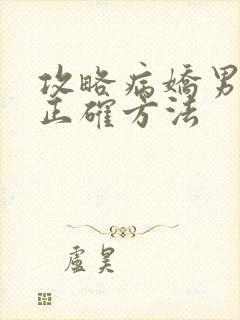 攻略病嬌男
正確方法
盧昊